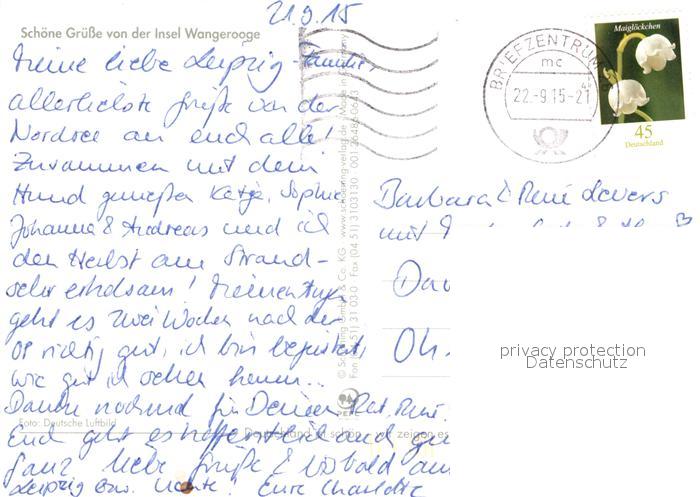 21.9.15
Schöne Grüße von der Insel Wangerooge
Meine liebe Leipzig-Familie,
allerliebste Grüße von der
Nordsee an euch alle!
Zusammen mit dem
Hund genießen Katja, Sophie
Johanna & Andreas und ich
den Herbst am Strand -
sehr erholsam! Meinen Augen
geht es zwei Wochen nach der
OP richtig gut, ich bin begeistert,
wie gut ich sehen kann...
Danke nochmal für Deinen Rat, René!
Foto: Deutsche Luftbild
Euch geht es hoffentlich auch gut
Ganz liebe Grüße & bis bald aus
Leipzig bzw. Eure Charlotte
© Schöning GmbH & Co. KG www.schoening-verlag.de Made in Germany
Fon (04 51) 31 03-0 Fax (04 51) 3103130
BRIEFZENTRUM
mc
22.-9.15-21
Maiglöckchen
45
Deutschland
Barbara & René Levers
mit
privacy protection
Datenschutz